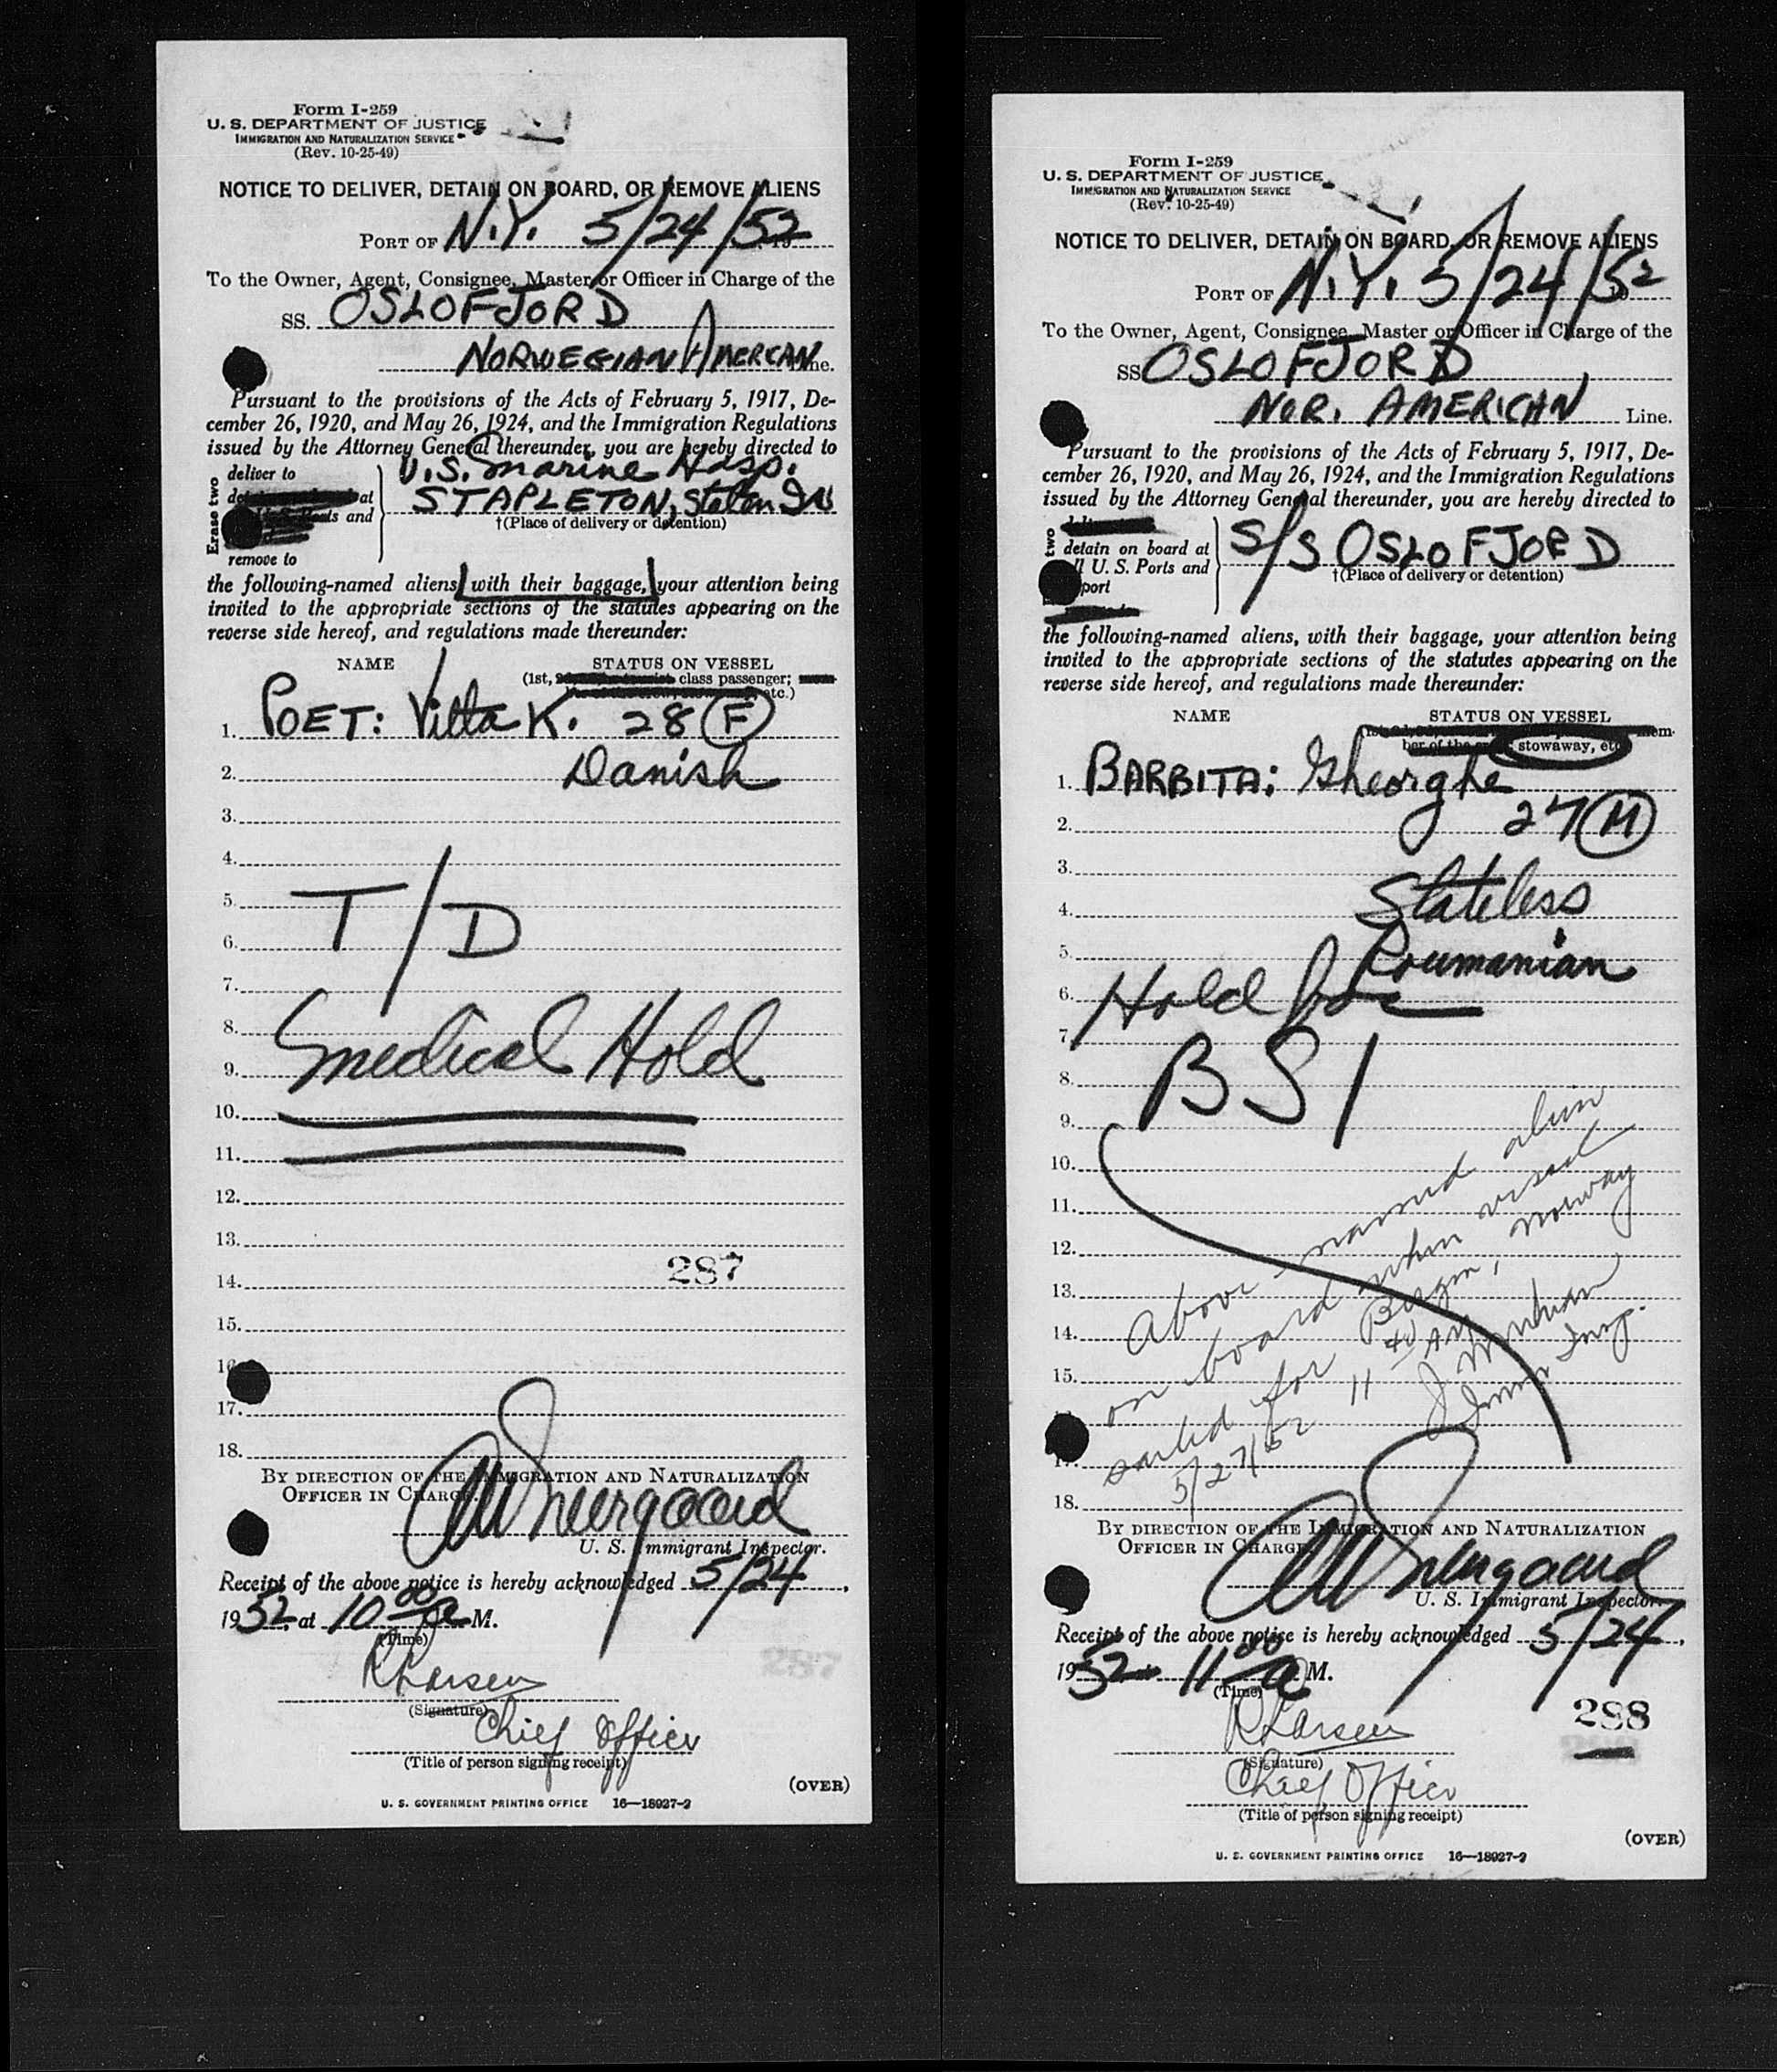 Form I-259
U. S. DEPARTMENT OF JUSTICE
IMMIGRATION AND NATURALIZATION SERVICE
(Rev. 10-25-49)
NOTICE TO DELIVER, DETAIN ON BOARD, OR REMOVE ALIENS
PORT OF N.Y. 5/24/52
To the Owner, Agent, Consignee, Master or Officer in Charge of the
SS. OSLOFJORD
NORWEGIAN AMERICAN
Pursuant to the provisions of the Acts of February 5, 1917, De-
cember 26, 1920, and May 26, 1924, and the Immigration Regulations
issued by the Attorney General thereunder, you are hereby directed to
Erase two
deliver to U.S. Marine Hosp.
at STAPLETON, Staten Isl
and †(Place of delivery or detention)
remove to
the following-named aliens, with their baggage, your attention being
invited to the appropriate sections of the statutes appearing on the
reverse side hereof, and regulations made thereunder:
NAME STATUS ON VESSEL
(1st, class passenger;
etc.)
1. POET: Vitta K. 28 (F)
2. Danish
3.
4.
5.
6. T/D
7.
8.
9. Medical Hold
10.
11.
12.
13.
287
14.
15.
16
17.
18.
BY DIRECTION OF THE IMMIGRATION AND NATURALIZATION
OFFICER IN CHARGE
U. S. Immigrant Inspector.
Receipt of the above notice is hereby acknowledged 5/24,
1952 at 10 00 a M.
(Time)
287
R Larsen
(Signature)
Chief Officer
(Title of person signing receipt)
(OVER)
U. S. GOVERNMENT PRINTING OFFICE 16—18927-2
Form I-259
U. S. DEPARTMENT OF JUSTICE
IMMIGRATION AND NATURALIZATION SERVICE
(Rev. 10-25-49)
NOTICE TO DELIVER, DETAIN ON BOARD, OR REMOVE ALIENS
PORT OF N.Y. 5/24/52
To the Owner, Agent, Consignee, Master or Officer in Charge of the
SS OSLOFJORD
NOR. AMERICAN Line.
Pursuant to the provisions of the Acts of February 5, 1917, De-
cember 26, 1920, and May 26, 1924, and the Immigration Regulations
issued by the Attorney General thereunder, you are hereby directed to
two
detain on board at S/S OSLOFJORD
U. S. Ports and †(Place of delivery or detention)
port
the following-named aliens, with their baggage, your attention being
invited to the appropriate sections of the statutes appearing on the
reverse side hereof, and regulations made thereunder:
NAME STATUS ON VESSEL
stowaway, etc
1. BARBITA: Gheorghe
2. 27 (M)
3.
4. Stateless
5. Roumanian
6. Hold for
7.
8. BSI
9.
10.
11.
12.
13.
14.
15.
17.
18.
Above named alien
on board when vessel
sailed for Bergen, Norway
5/27/52 11 40 AM
Imm Insp.
BY DIRECTION OF THE IMMIGRATION AND NATURALIZATION
OFFICER IN CHARGE
U. S. Immigrant Inspector.
Receipt of the above notice is hereby acknowledged 5/24,
1952 11 00 a M.
(Time)
288
R Larsen
(Signature)
Chief Officer
(Title of person signing receipt)
(OVER)
U. S. GOVERNMENT PRINTING OFFICE 16—18927-2